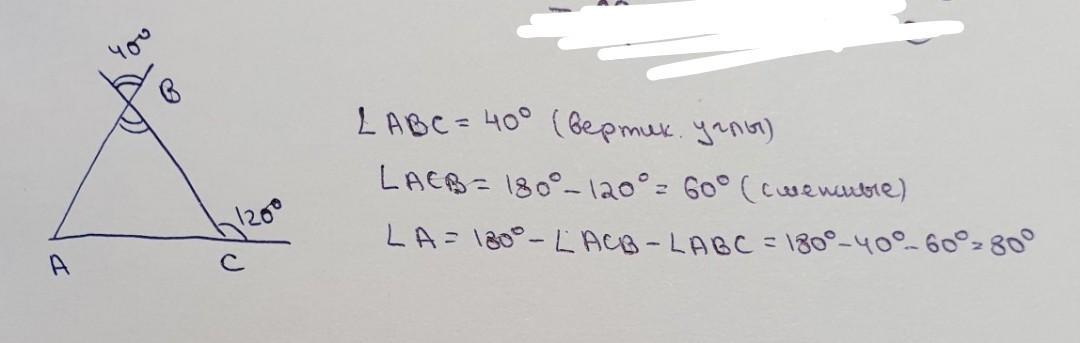 40°
B
∠ABC = 40° (вертик. углы)
∠ACB = 180° - 120° = 60° (смежные)
120°
∠A = 180° - ∠ACB - ∠ABC = 180° - 40° - 60° = 80°
A
C